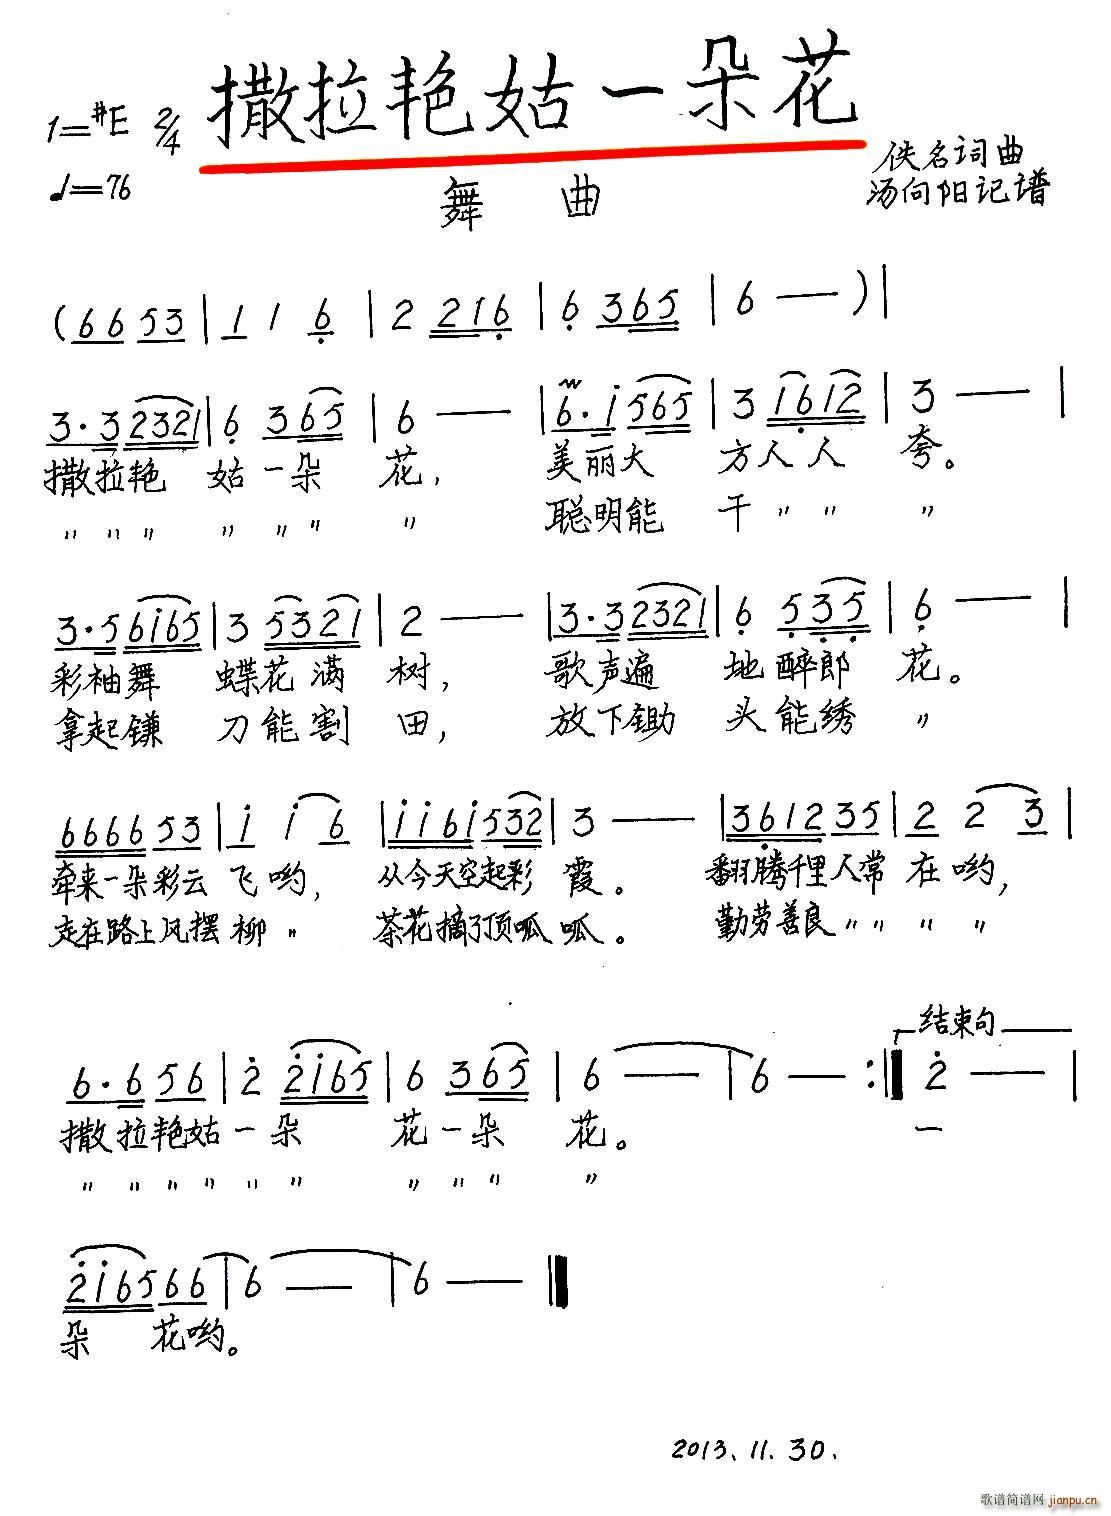 撒拉艳姑一朵花
1=#E 2/4
♩=76
舞 曲
佚名词曲
汤向阳记谱
(6 6 5 3 | 1 1 6 | 2 2 1 6 | 6 3 6 5 | 6 — ) |
3·3 2 3 2 1 | 6 3 6 5 | 6 — | 6·i 5 6 5 | 3 1 6 1 2 | 3 — |
撒拉艳 姑一朵 花, 美丽大 方人人 夸。
〃 〃 〃 〃 〃 〃 〃 聪明能 干 〃 〃 〃
3·5 6 i 6 5 | 3 5 3 2 1 | 2 — | 3·3 2 3 2 1 | 6 5 3 5 | 6 — |
彩袖舞 蝶花满 树, 歌声遍 地醉郎 花。
拿起镰 刀能割 田, 放下锄 头能绣 〃
6 6 6 6 5 3 | i i 6 | i i 6 i 5 3 2 | 3 — | 3 6 1 2 3 5 | 2 2 3 |
牵来一朵彩云 飞哟, 从今天空起彩 霞。 翻腾千里人常 在哟,
走在路上风摆 柳 〃 茶花摘了顶呱 呱。 勤劳善良 〃 〃 〃 〃
结束句
6·6 5 6 | 2 2 i 6 5 | 6 3 6 5 | 6 — | 6 — :‖ 2 — |
撒拉艳姑一朵 花一朵 花。 一
〃 〃 〃 〃 〃 〃 〃 〃 〃 〃
2 i 6 5 6 6 | 6 — | 6 — ‖
朵 花哟。
2013.11.30.
歌谱简谱网 jianpu.cn